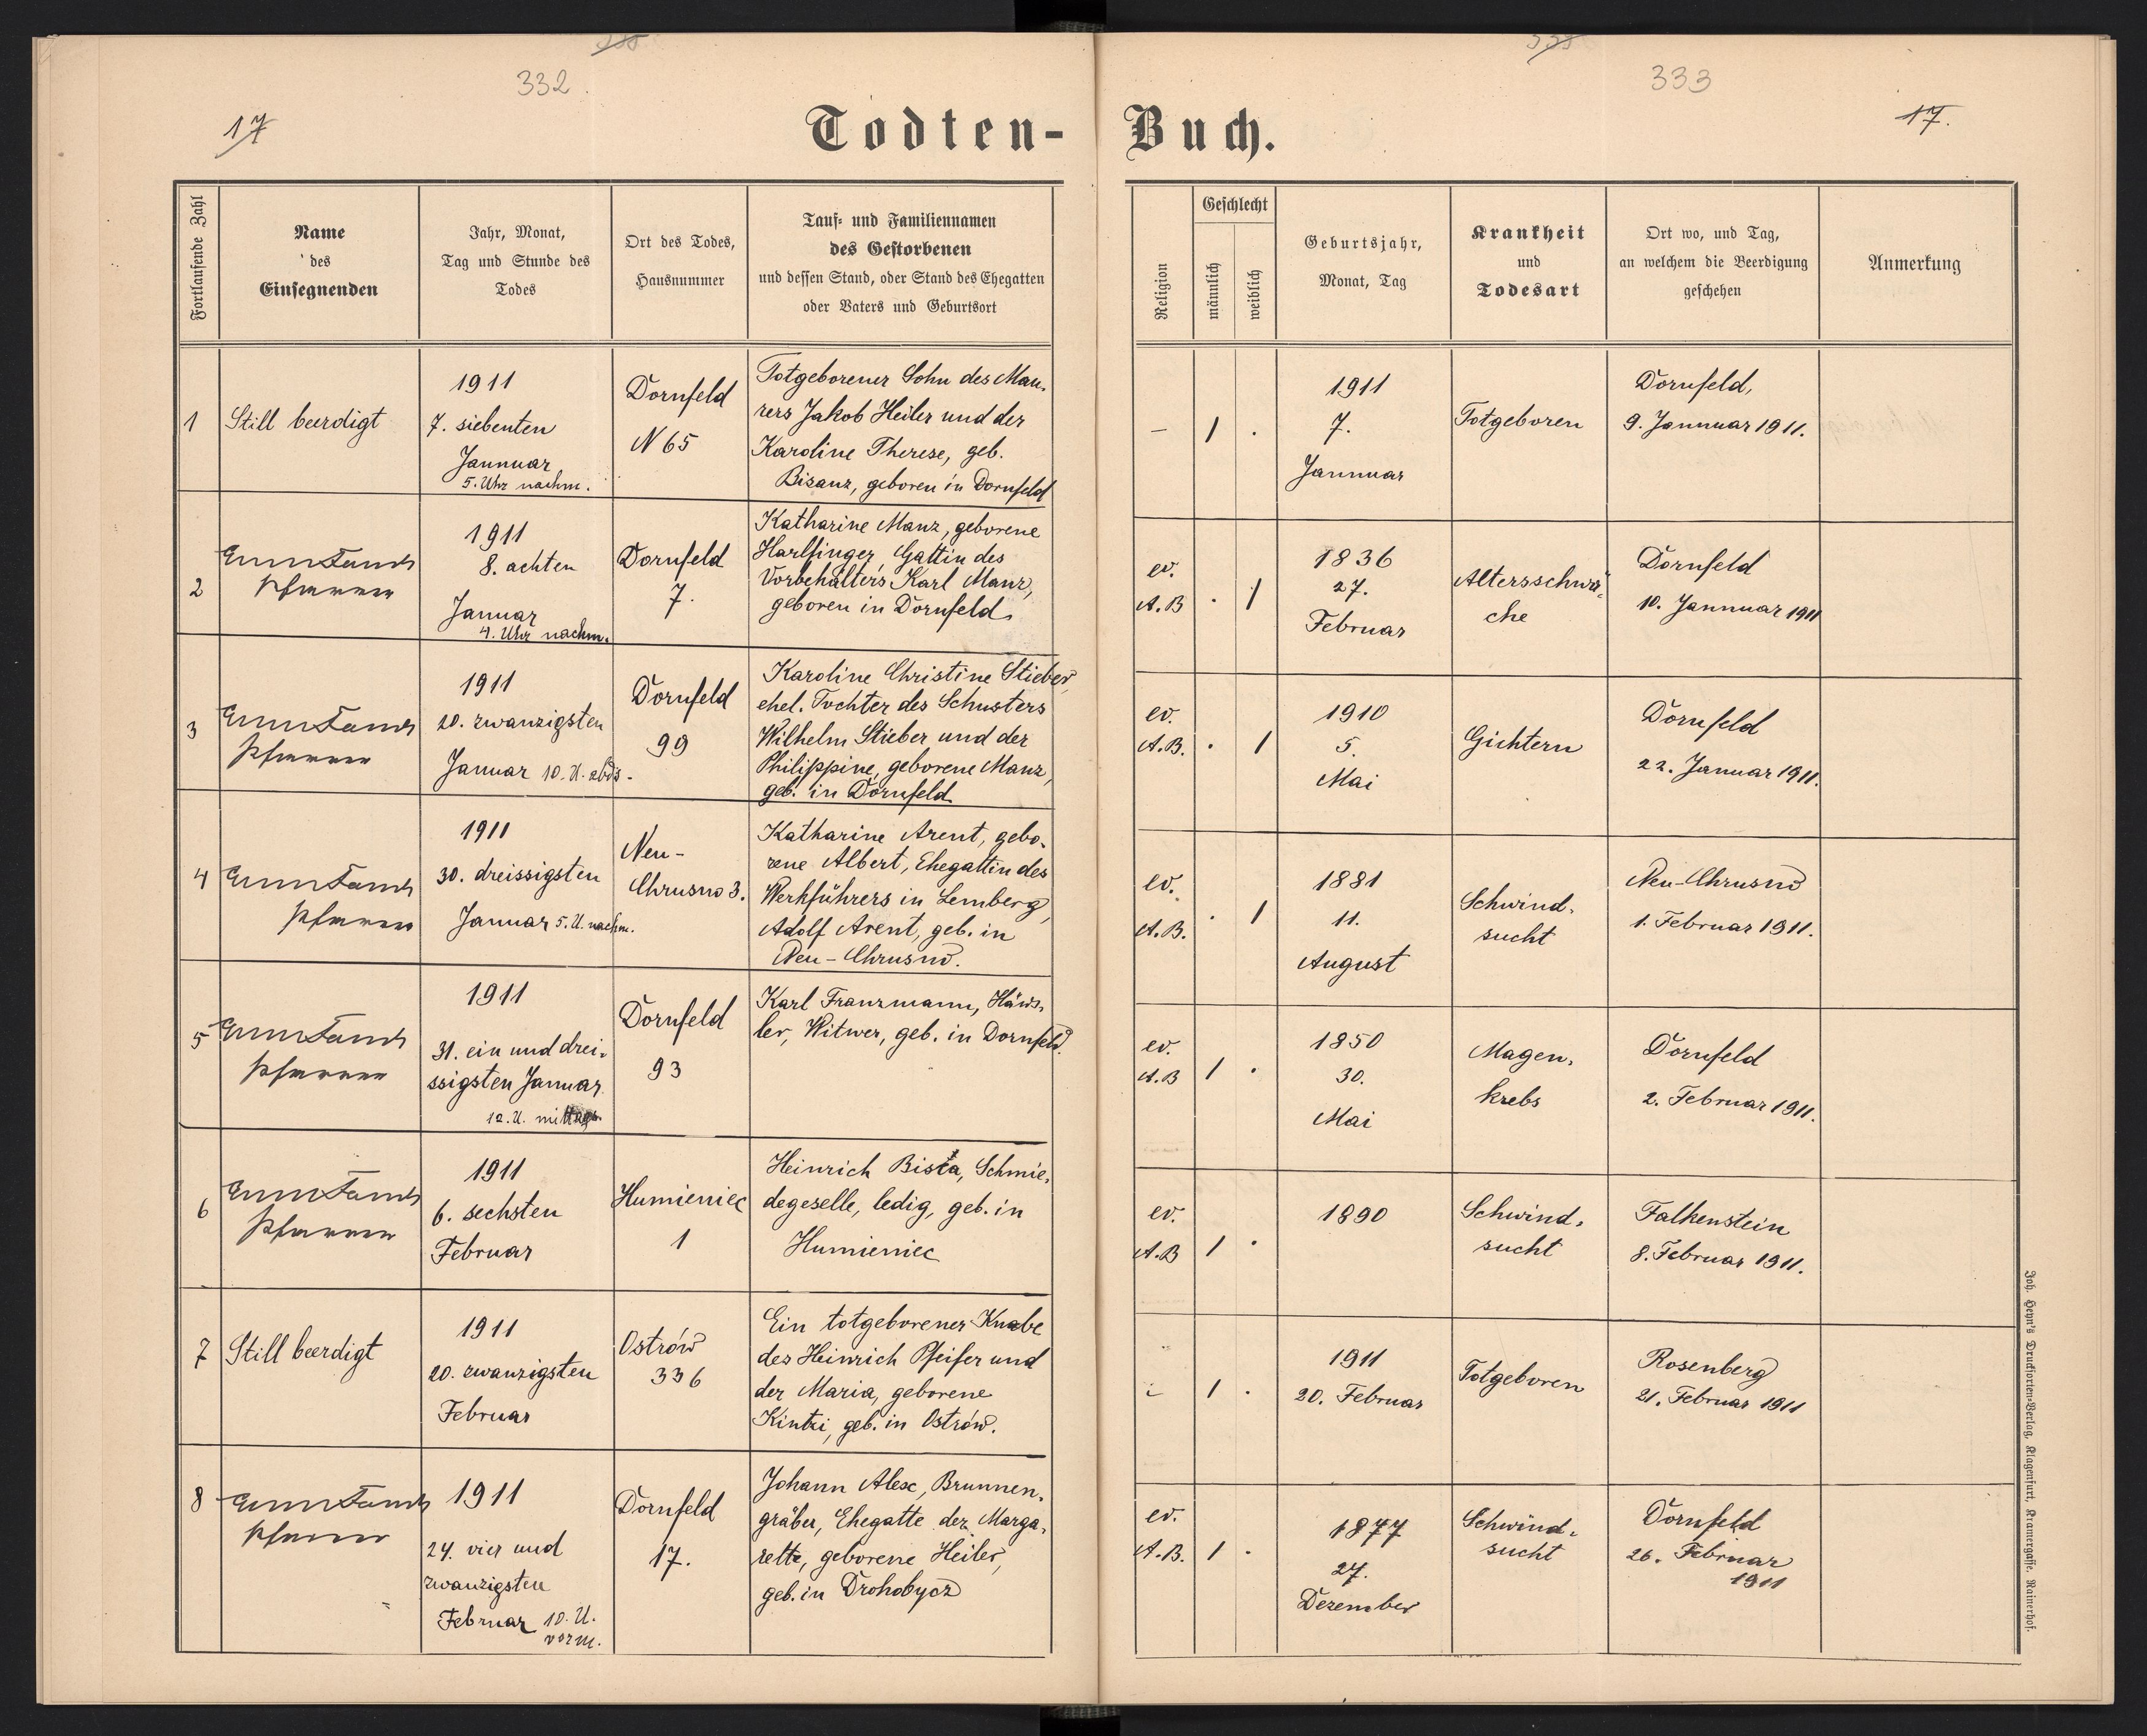 332
333
17
17.
Todten-Buch.
Fortlaufende Zahl
Name
des
Einsegnenden
Jahr, Monat,
Tag und Stunde des
Todes
Ort des Todes,
Hausnummer
Tauf- und Familiennamen
des Gestorbenen
und dessen Stand, oder Stand des Ehegatten
oder Vaters und Geburtsort
Religion
Geschlecht
männlich
weiblich
Geburtsjahr,
Monat, Tag
Krankheit
und
Todesart
Ort wo, und Tag,
an welchem die Beerdigung
geschehen
Anmerkung
1
Still beerdigt
1911
7. siebenten
Jannuar
5. Uhr nachm.
Dornfeld
N 65
Totgeborener Sohn des Mau-
rers Jakob Heiler und der
Karoline Therese, geb.
Bisanz, geboren in Dornfeld
—
1
.
1911
7.
Jannuar
Totgeboren
Dornfeld,
9. Jannuar 1911.
2
Pfarrer
1911
8. achten
Januar
4. Uhr nachm.
Dornfeld
7.
Katharine Manz, geborene
Harlfinger, Gattin des
Vorbehälters Karl Manz,
geboren in Dornfeld.
ev.
A.B
.
1
1836
27.
Februar
Altersschwä-
che
Dornfeld
10. Jannuar 1911
3
Pfarrer
1911
20. zwanzigsten
Januar 10. U. abds.
Dornfeld
99
Karoline Christine Stieber,
ehel. Tochter des Schusters
Wilhelm Stieber und der
Philippine, geborene Manz,
geb. in Dornfeld
ev.
A.B.
.
1
1910
5.
Mai
Gichtern
Dornfeld
22. Januar 1911.
4
Pfarrer
1911
30. dreissigsten
Januar 5. U. nachm.
Neu-
Chrusno 3.
Katharine Arent, gebo-
rene Albert, Ehegattin des
Werkführers in Lemberg,
Adolf Arent, geb. in
Neu-Chrusno.
ev.
A.B.
.
1
1881
11.
August
Schwind-
sucht
Neu-Chrusno
1. Februar 1911.
5
Pfarrer
1911
31. ein und drei-
ssigsten Januar
12. U. mittags.
Dornfeld
93
Karl Franzmann, Häus-
ler, Witwer, geb. in Dornfeld.
ev.
A.B
1
.
1850
30.
Mai
Magen-
krebs
Dornfeld
2. Februar 1911.
6
Pfarrer
1911
6. sechsten
Februar
Humieniec
1
Heinrich Bista, Schmie-
degeselle, ledig, geb. in
Humieniec
ev.
A.B
1
.
1890
Schwind-
sucht
Falkenstein
8. Februar 1911.
7
Still beerdigt
1911
20. zwanzigsten
Februar
Ostrów
336
Ein totgeborener Knabe
des Heinrich Pfeifer und
der Maria, geborene
Kintzi, geb. in Ostrów.
1
.
1911
20. Februar
Totgeboren
Rosenberg
21. Februar 1911
8
Pfarrer
1911
24. vier und
zwanzigsten
Februar 10. U.
vorm.
Dornfeld
17.
Johann Alex, Brunnen-
gräber, Ehegatte der Marga-
rette, geborene Heiler,
geb. in Drohobycz
ev.
A.B.
1
.
1877
27.
Dezember
Schwind-
sucht
Dornfeld
26. Februar
1911
Joh. Heyn's Drucksorten-Verlag, Klagenfurt, Kramergasse, Rainerhof.